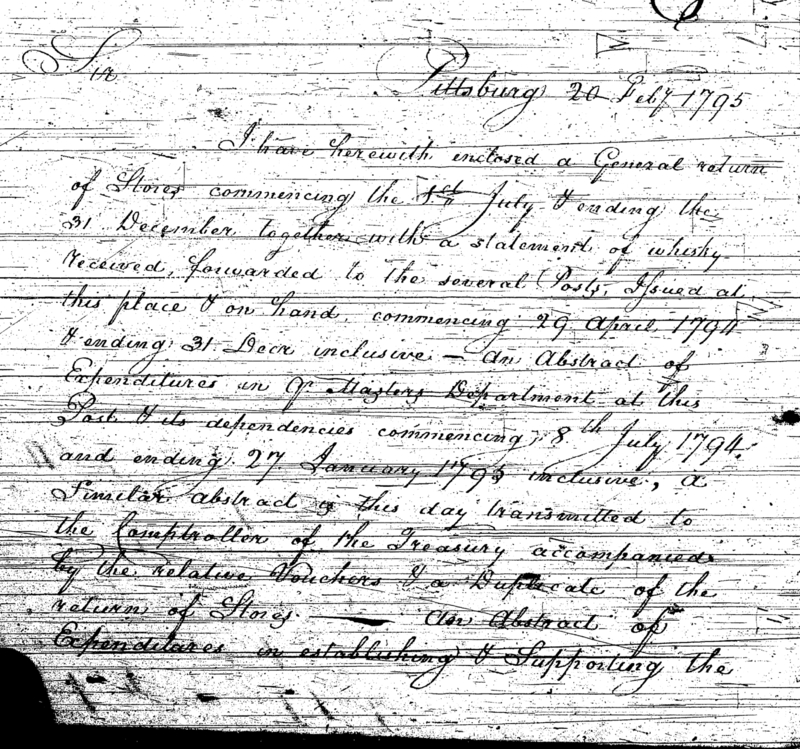 Sir
Pittsburg 20 Feby 1795
I have herewith enclosed a General return
of Stores commencing the 1st July & ending the
31 December together with a statement of whisky
received, forwarded to the several Posts, Issued at
this place & on hand, commencing 29 April 1794
& ending 31 Decr inclusive — An Abstract of
Expenditures in Qr Masters Department at this
Post & its dependencies commencing 8th July 1794
and ending 27 January 1795 inclusive, a
Similar abstract is this day transmitted to
the Comptroller of the Treasury accompanied
by the relative Vouchers & a Duplicate of the
return of Stores — An Abstract of
Expenditures in establishing & Supporting the